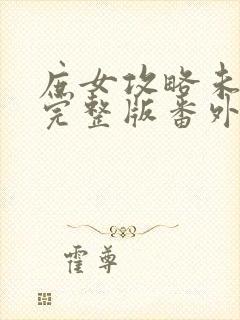 庶女攻略未
完整版番外
霍尊